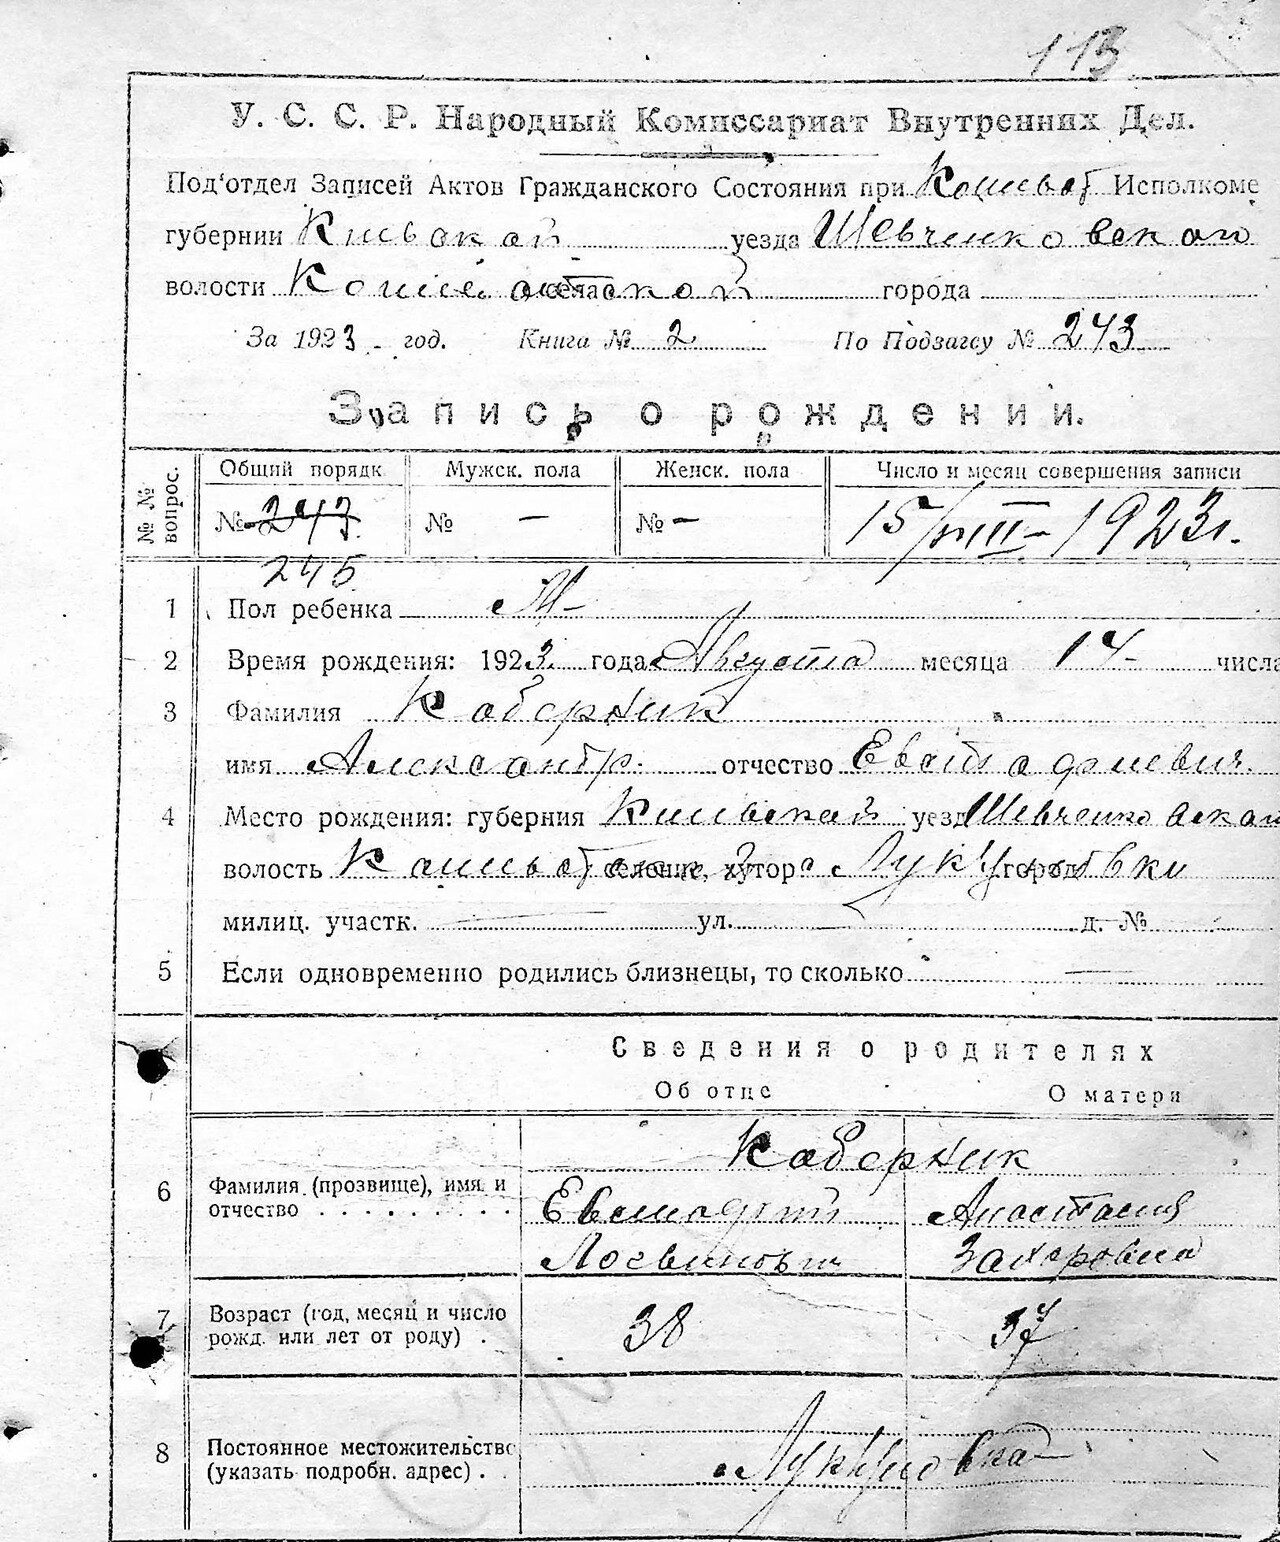 113
У. С. С. Р. Народный Комиссариат Внутренних Дел.
Под'отдел Записей Актов Гражданского Состояния при Кошеват Исполкоме
губернии Киевской уезда Шевченковской
волости Кошеватской села города
За 1923 год. Книга № 2 По Подзагсу № 243
Запись о рождении.
№№ вопрос. Общий порядк Мужск. пола Женск. пола Число и месяц совершения записи
№ 243 № — № — 15/VIII – 1923 г.
245
1 Пол ребенка М-
2 Время рождения: 1923 года Августа месяца 14 числа
3 Фамилия Каберник
имя Александр отчество Евстафиевич
4 Место рождения: губерния Киевской уезд Шевченковской
волость Кошеватской селение, хутор Лукьяновки город
милиц. участк. — ул. — д. №
5 Если одновременно родились близнецы, то сколько —
Сведения о родителях
Об отце О матери
Каберник
6 Фамилия (прозвище), имя и Анастасия
отчество Захаровна
7 Возраст (год, месяц и число 38 37
рожд. или лет от роду) .
8 Постоянное местожительство Лукьяновка
(указать подробн. адрес) . .